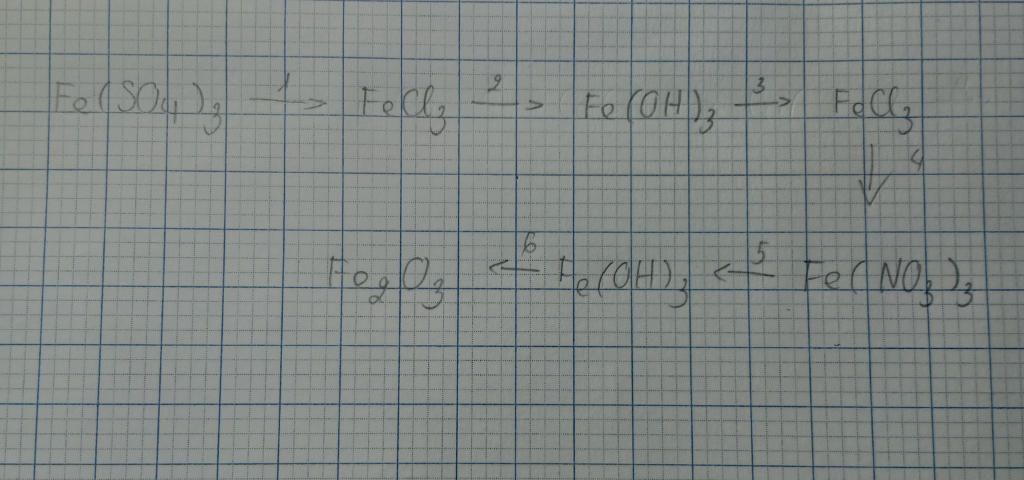 Fe(SO4)3 1→ FeCl3 2→ Fe(OH)3 3→ FeCl3
↓ 4
Fe2O3 6← Fe(OH)3 5← Fe(NO3)3